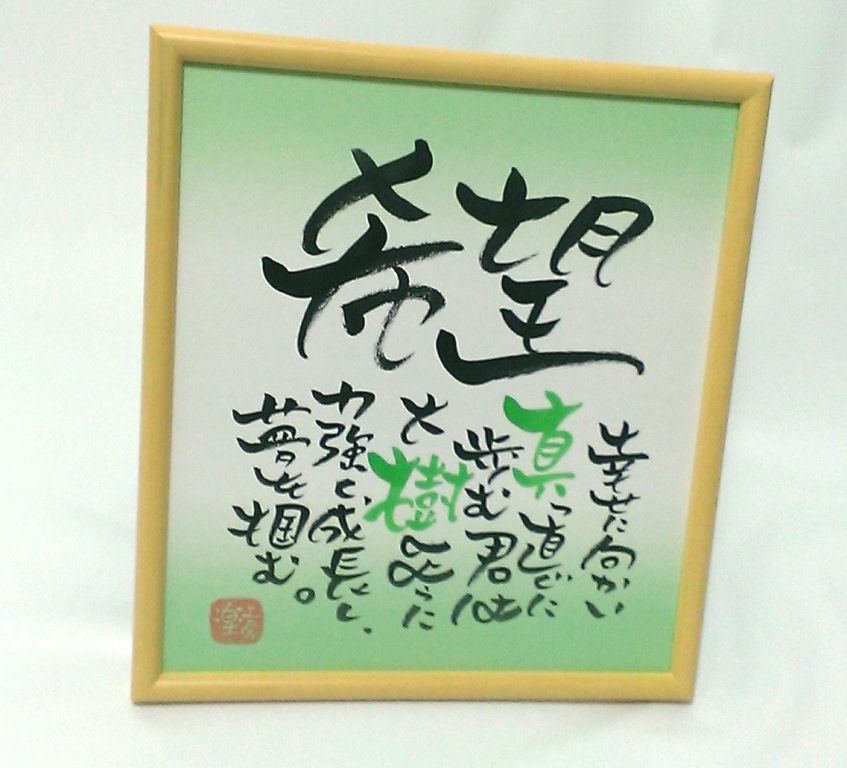 希望
幸せに向かい
真っ直ぐに
歩む君は
大樹のように
力強く成長し、
夢を掴む。